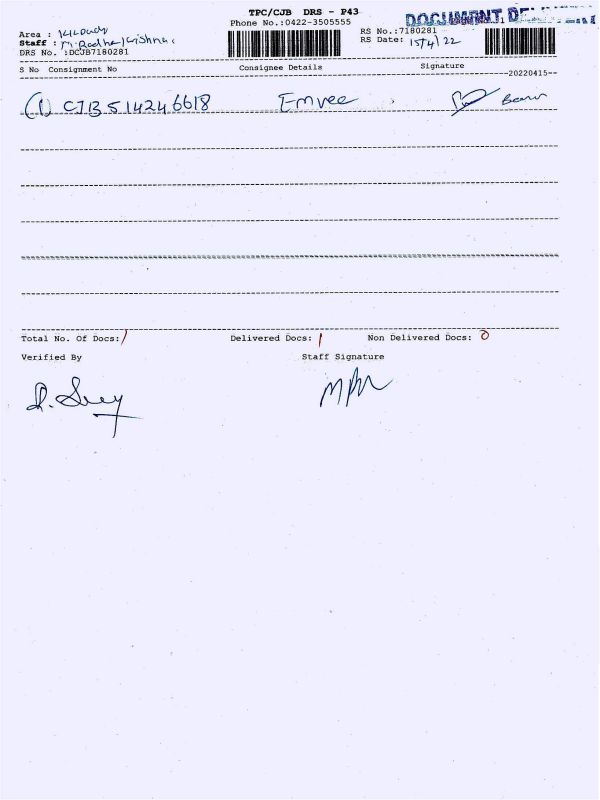 TPC/CJB DRS - P43
Phone No.:0422-3505555
DOCUMENT
Area :
Staff : M. Radha Krishna
DRS No. :DCJB7180281
RS No.:7180281
RS Date: 15/4/22
S No Consignment No Consignee Details Signature
--20220415--
(1) CJB514246618 Emvee
Total No. Of Docs:/ Delivered Docs: 1 Non Delivered Docs: 0
Verified By Staff Signature